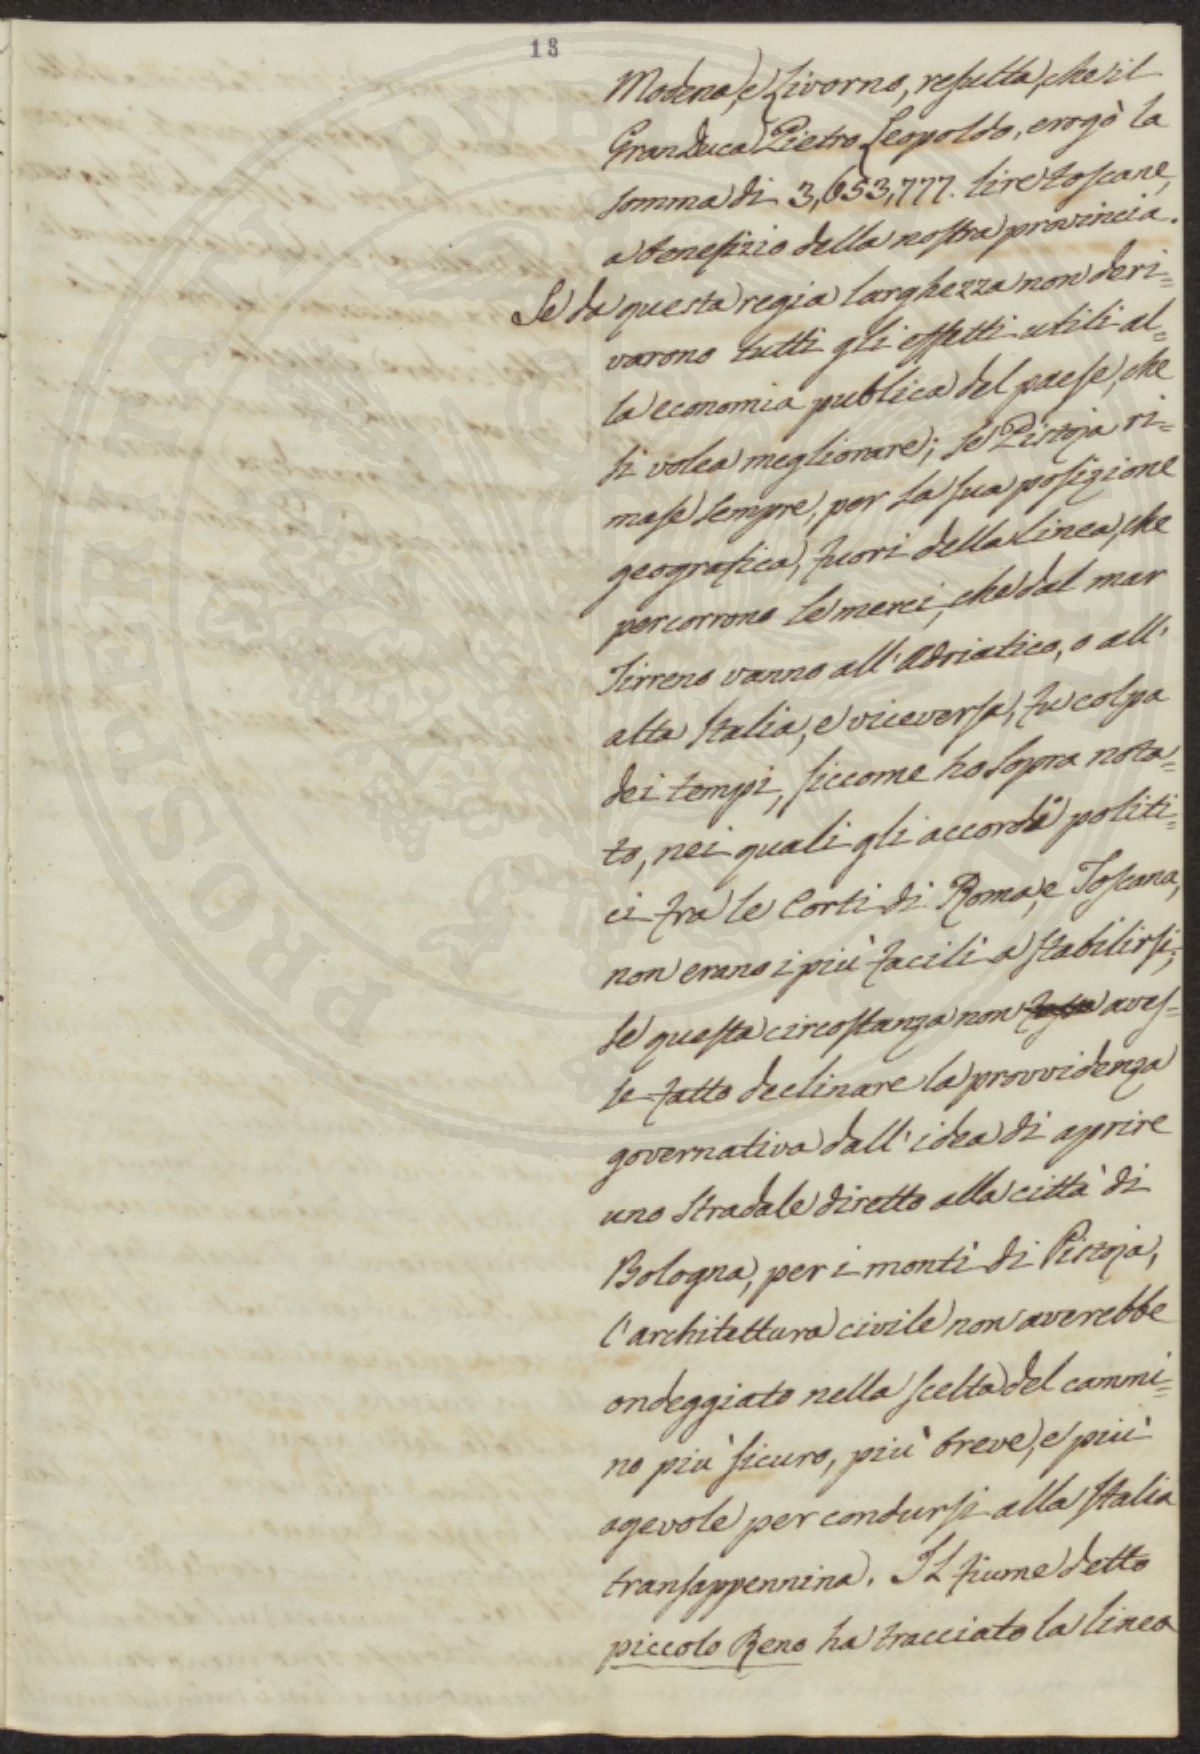 13
Modena, e Livorno, resulta, che il
GranDuca Pietro Leopoldo, erogò la
somma di 3,653,777. lire toscane,
a benefizio della nostra provincia.
Se da questa regia larghezza non deri=
varono tutti gli effetti utili al=
la economia publica del paese, che
si volea megliorare; se Pistoja ri=
mase sempre, per la sua posizione
geografica, fuori della linea, che
percorrono le merci, che dal mar
Tirreno vanno all'Adriatico, o all'
alta Italia, e viceversa, fu colpa
dei tempi, siccome ho sopra nota=
to, nei quali gli accordi politi=
ci tra le Corti di Roma, e Toscana,
non erano i più facili a stabilirsi;
se questa circostanza non aves=
se fatto declinare la provvidenza
governativa dall'idea di aprire
uno stradale diretto alla città di
Bologna, per i monti di Pistoja,
l'architettura civile non averebbe
ondeggiato nella scelta del cammi=
no più sicuro, più breve, e più
agevole per condursi alla Italia
transappennina. Il fiume detto
piccolo Reno ha tracciato la linea
PROSPERITATI PVBLICAE